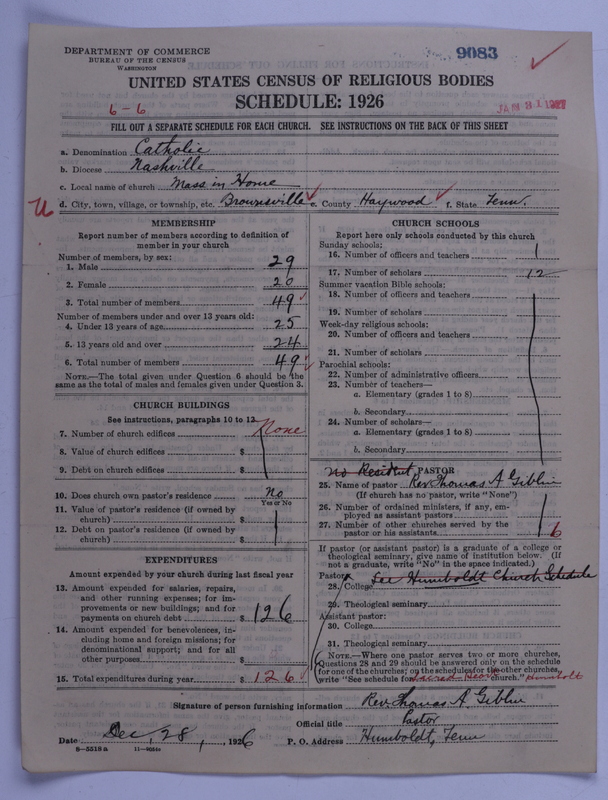 DEPARTMENT OF COMMERCE
BUREAU OF THE CENSUS
WASHINGTON
9083
UNITED STATES CENSUS OF RELIGIOUS BODIES
SCHEDULE: 1926
6-6
JAN 31 1927
FILL OUT A SEPARATE SCHEDULE FOR EACH CHURCH. SEE INSTRUCTIONS ON THE BACK OF THIS SHEET
a. Denomination Catholic
b. Diocese Nashville
c. Local name of church Mass in Home
d. City, town, village, or township, etc. Brownsville e. County Haywood f. State Tenn.
MEMBERSHIP
Report number of members according to definition of member in your church
Number of members, by sex:
1. Male 29
2. Female 20
3. Total number of members 49
Number of members under and over 13 years old:
4. Under 13 years of age 25
5. 13 years old and over 24
6. Total number of members 49
NOTE.—The total given under Question 6 should be the
same as the total of males and females given under Question 3.
CHURCH BUILDINGS
See instructions, paragraphs 10 to 12
7. Number of church edifices None
8. Value of church edifices $
9. Debt on church edifices $
10. Does church own pastor's residence No
Yes or No
11. Value of pastor's residence (if owned by
church) $
12. Debt on pastor's residence (if owned by
church) $
EXPENDITURES
Amount expended by your church during last fiscal year
13. Amount expended for salaries, repairs,
and other running expenses; for im-
provements or new buildings; and for
payments on church debt $ 126
14. Amount expended for benevolences, in-
cluding home and foreign missions; for
denominational support; and for all
other purposes $
15. Total expenditures during year $ 126
CHURCH SCHOOLS
Report here only schools conducted by this church
Sunday schools:
16. Number of officers and teachers 1
17. Number of scholars 12
Summer vacation Bible schools:
18. Number of officers and teachers
19. Number of scholars
Week-day religious schools:
20. Number of officers and teachers
21. Number of scholars
Parochial schools:
22. Number of administrative officers
23. Number of teachers—
a. Elementary (grades 1 to 8)
b. Secondary
24. Number of scholars—
a. Elementary (grades 1 to 8)
b. Secondary
no Resident PASTOR
25. Name of pastor Rev. Thomas A Giblin
(If church has no pastor, write "None")
26. Number of ordained ministers, if any, em-
ployed as assistant pastors
27. Number of other churches served by the
pastor or his assistants 6
If pastor (or assistant pastor) is a graduate of a college or
theological seminary, give name of institution below. (If
not a graduate, write "No" in the space indicated.)
Pastor:
28. College See Humboldt Church Schedule
29. Theological seminary
Assistant pastor:
30. College
31. Theological seminary
NOTE.—Where one pastor serves two or more churches,
Questions 28 and 29 should be answered only on the schedule
for one of the churches; on the schedules for the other churches,
write "See schedule for Sacred Heart church." Humboldt
Signature of person furnishing information Rev. Thomas A Giblin
Official title Pastor
Date Dec, 28, 1926 P. O. Address Humboldt, Tenn
8—5518a